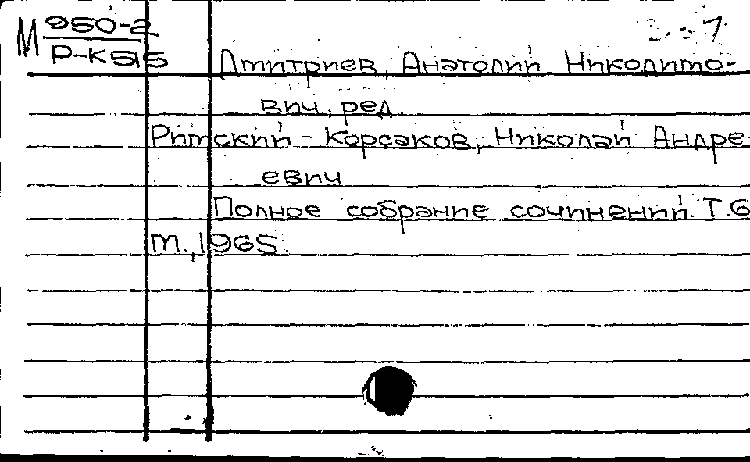 М 950-2
Р-К515
Дмитриев, Анатолий Никодимо-
вич, ред.
Римский-Корсаков, Николай Андре
евич
Полное собрание сочинений. Т.6
М., 1965.